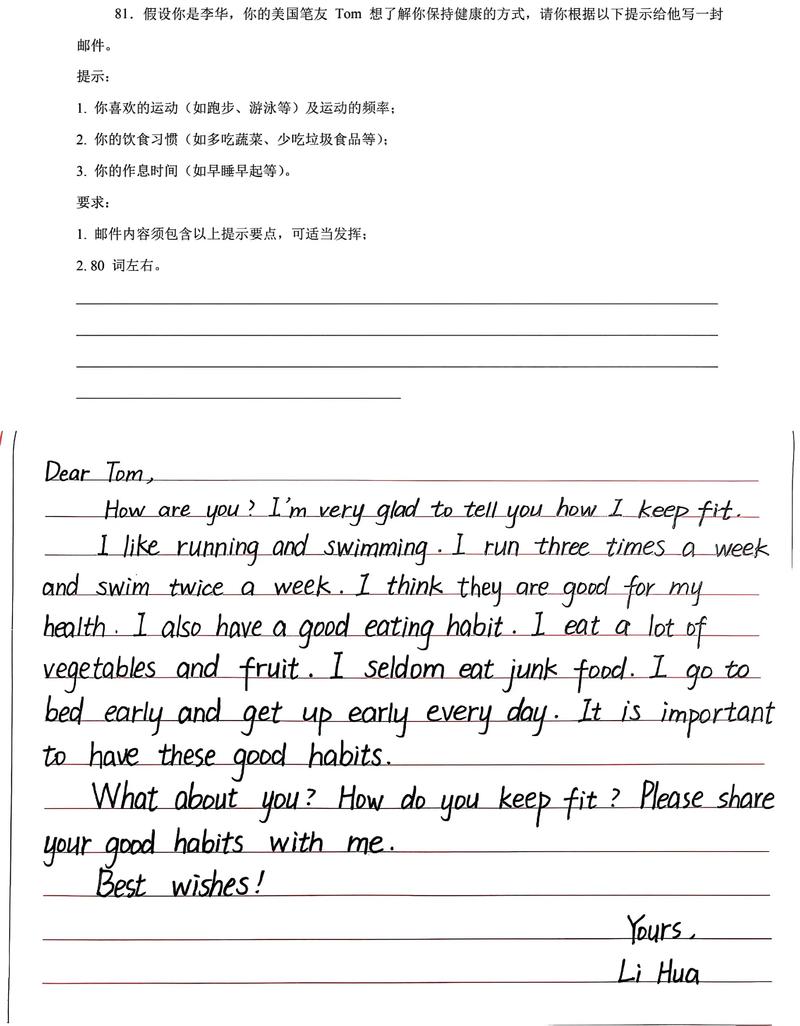 81. 假设你是李华，你的美国笔友 Tom 想了解你保持健康的方式，请你根据以下提示给他写一封
邮件。
提示：
1. 你喜欢的运动（如跑步、游泳等）及运动的频率；
2. 你的饮食习惯（如多吃蔬菜、少吃垃圾食品等）；
3. 你的作息时间（如早睡早起等）。
要求：
1. 邮件内容须包含以上提示要点，可适当发挥；
2. 80 词左右。
Dear Tom,
How are you? I'm very glad to tell you how I keep fit.
I like running and swimming. I run three times a week
and swim twice a week. I think they are good for my
health. I also have a good eating habit. I eat a lot of
vegetables and fruit. I seldom eat junk food. I go to
bed early and get up early every day. It is important
to have these good habits.
What about you? How do you keep fit? Please share
your good habits with me.
Best wishes!
Yours,
Li Hua